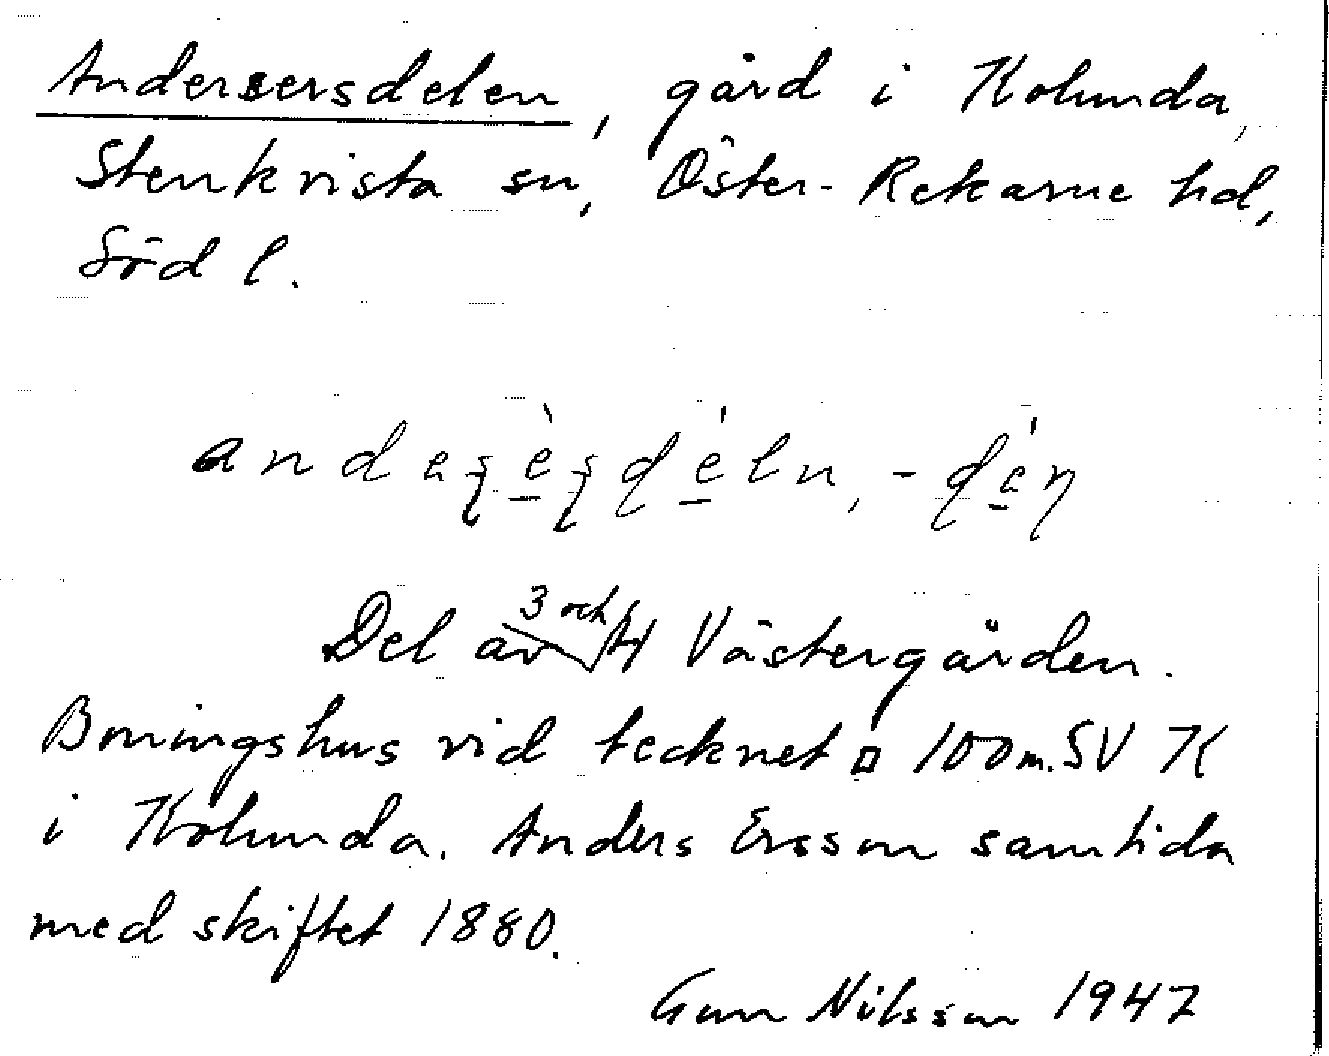 Andersersdelen, gård i Kolunda,
Stenkvista sn, Öster-Rekarne hd,
Söd l.
Del av 3 och 4 Västergården.
Boningshus vid tecknet □ 100 m. SV K
i Kolunda. Anders Ersson samtida
med skiftet 1880.
Gun Nilsson 1947